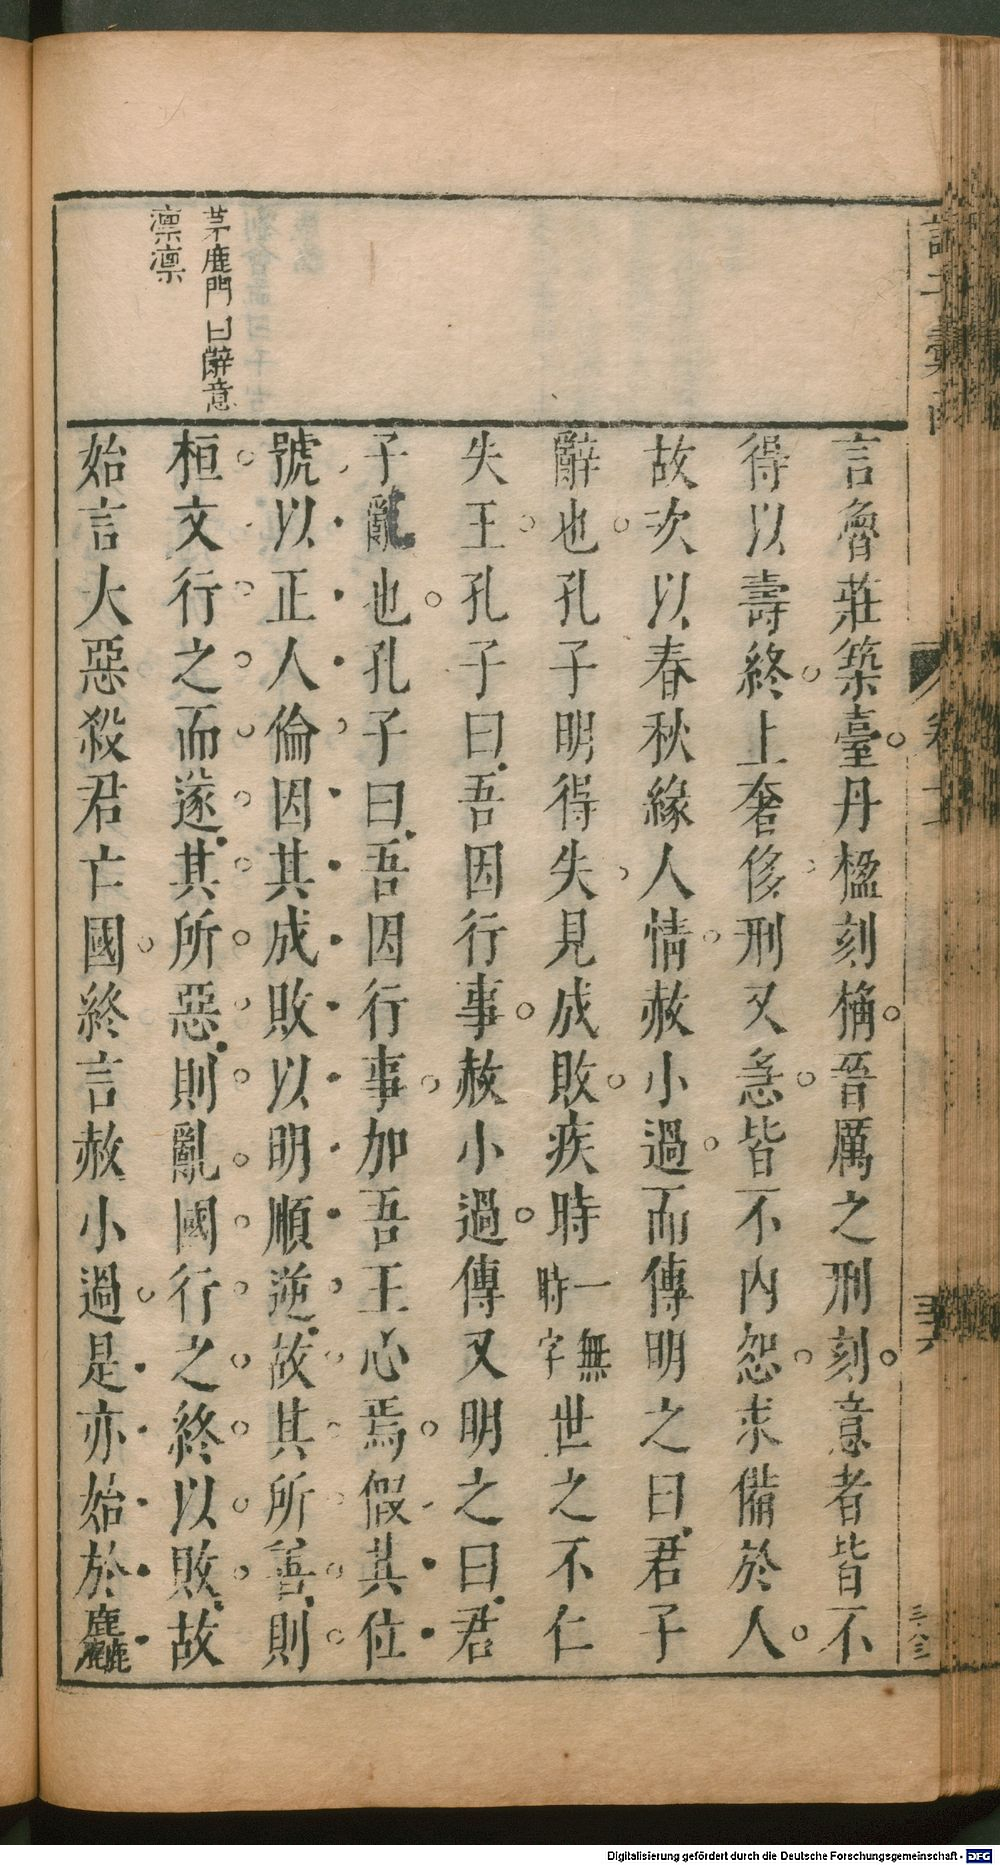 茅鹿門曰辭意
凛凛
言魯莊築臺丹楹刻桷晉厲之刑刻意者皆不
得以壽終上奢侈刑又急皆不內恕求備於人
故次以春秋緣人情赦小過而傳明之曰君子
辭也孔子明得失見成敗疾時一無時字世之不仁
失王孔子曰吾因行事赦小過傳又明之曰君
子亂也孔子曰吾因行事加吾王心焉假其位
號以正人倫因其成敗以明順逆故其所善則
桓文行之而遂其所惡則亂國行之終以敗故
始言大惡殺君亡國終言赦小過是亦始於麤
諸子彙函
卷十
三十六
Digitalisierung gefördert durch die Deutsche Forschungsgemeinschaft - DFG